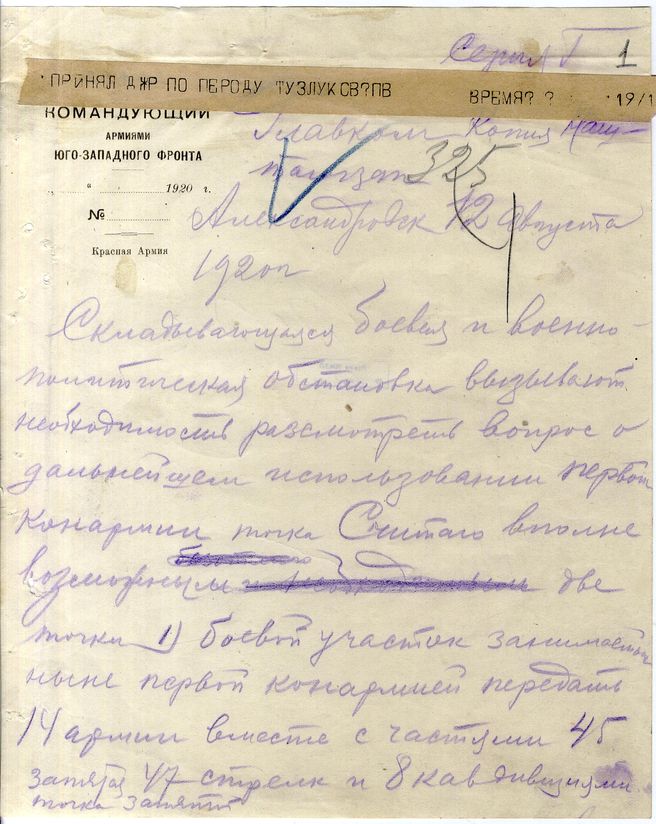 Серия Г 1
ПРИНЯЛ ДЖР ПО ПЕРОДУ ТУЗЛУКОВ?ПВ ВРЕМЯ? ? 19/1
КОМАНДУЮЩИЙ
АРМИЯМИ
ЮГО-ЗАПАДНОГО ФРОНТА
" 1920 г.
№
Красная Армия
Главком Копия Наш-
тазап
325
Александровск 12 Августа
1920г
Складывающаяся боевая и военно-
политическая обстановка вызывают
необходимость рассмотреть вопрос о
дальнейшем использовании первой
конармии точка Считаю вполне
возможным две
точки 1) боевой участок занимаемый
ныне первой конармией передать
14 армии вместе с частями 45
запятая 47 стрелк и 8 кав дивизиями
точка запятая